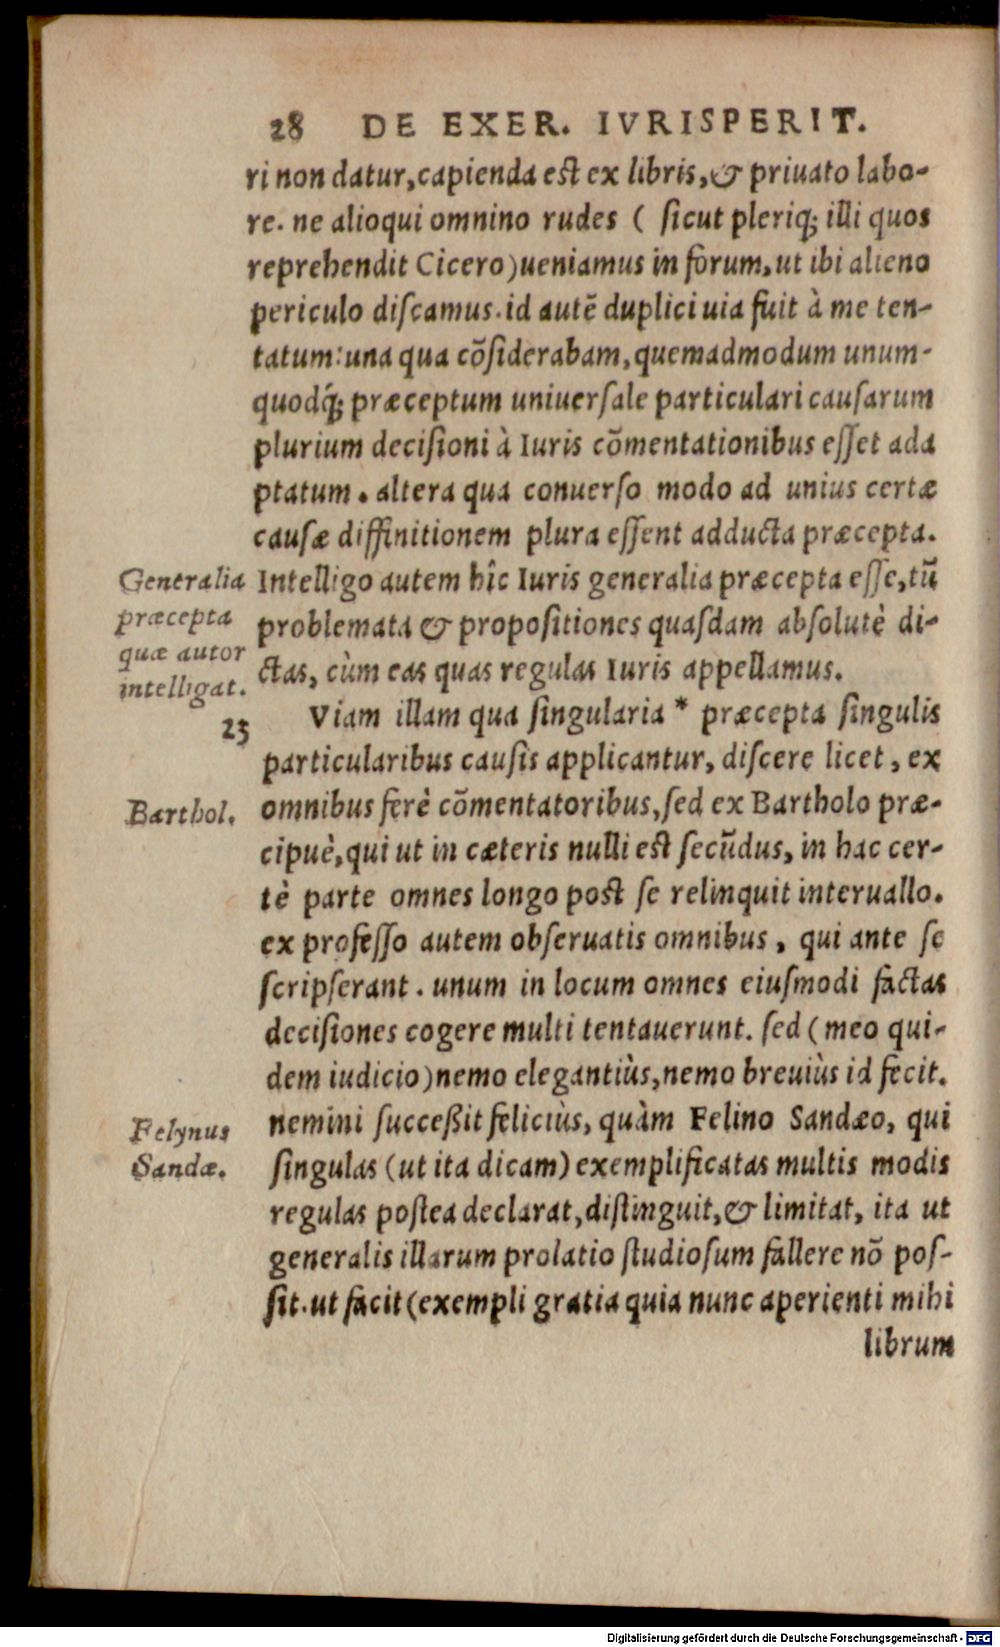 28 DE EXER. IVRISPERIT.
ri non datur, capienda est ex libris, & priuato labo-
re. ne alioqui omnino rudes ( sicut pleriq; illi quos
reprehendit Cicero) ueniamus in forum, ut ibi alieno
periculo discamus. id autē duplici uia fuit à me ten-
tatum: una qua cōsiderabam, quemadmodum unum-
quodq́; præceptum uniuersale particulari causarum
plurium decisioni à Iuris cōmentationibus esset ada
ptatum. altera qua conuerso modo ad unius certæ
causæ diffinitionem plura essent adducta præcepta.
Generalia
præcepta
quæ autor
intelligat.
Intelligo autem hîc Iuris generalia præcepta esse, tū
problemata & propositiones quasdam absolutè di-
ctas, cùm eas quas regulas Iuris appellamus.
23
Viam illam qua singularia * præcepta singulis
particularibus causis applicantur, discere licet, ex
Barthol.
omnibus ferè cōmentatoribus, sed ex Bartholo præ-
cipuè, qui ut in cæteris nulli est secūdus, in hac cer-
tè parte omnes longo post se relinquit interuallo.
ex professo autem obseruatis omnibus, qui ante se
scripserant. unum in locum omnes eiusmodi factas
decisiones cogere multi tentauerunt. sed (meo qui-
dem iudicio) nemo elegantiùs, nemo breuiùs id fecit.
Felynus
Sandæ.
nemini succeßit feliciùs, quàm Felino Sandæo, qui
singulas (ut ita dicam) exemplificatas multis modis
regulas postea declarat, distinguit, & limitat, ita ut
generalis illarum prolatio studiosum fallere nō pos-
sit. ut facit (exempli gratia quia nunc aperienti mihi
librum
Digitalisierung gefördert durch die Deutsche Forschungsgemeinschaft - DFG